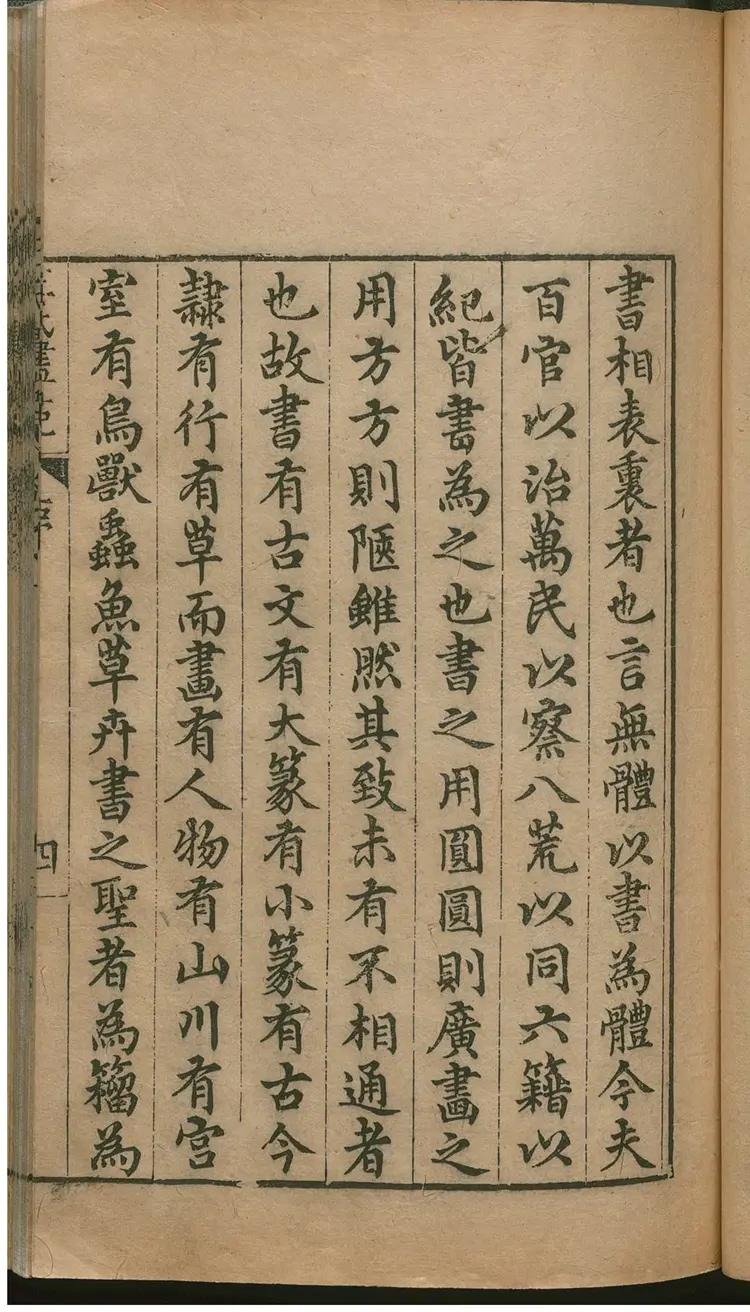 書相表裏者也言無體以書為體今夫
百官以治萬民以察八荒以同六籍以
紀皆書為之也書之用圓圓則廣畫之
用方方則陋雖然其致未有不相通者
也故書有古文有大篆有小篆有古今
隷有行有草而畫有人物有山川有宫
室有鳥獸蟲魚草卉書之聖者為籀為
四